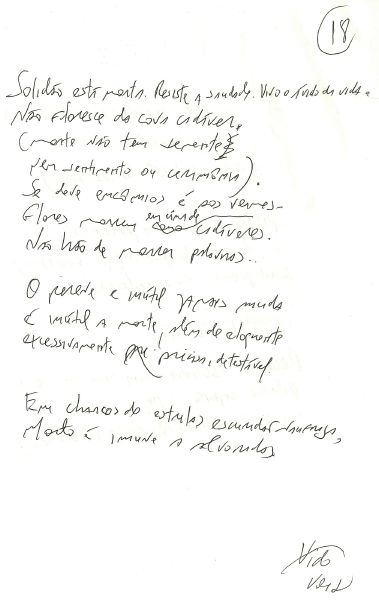 18
Solidão está morta. Resiste a saudade. Vivo o fundo da vida.
Não floresce da cova cadáver.
(morte não tem semente
nem sentimento ou cerimônia).
Se deve encômios é aos vermes
Flores morrem em cima de cadáveres.
Não hão de morrer palavras...
O perene é inútil jamais muda
é inútil a morte, além de eloquente
excessivamente preciosa, detestável.
Em charcos de estrelas
Morto é imune a alvoradas